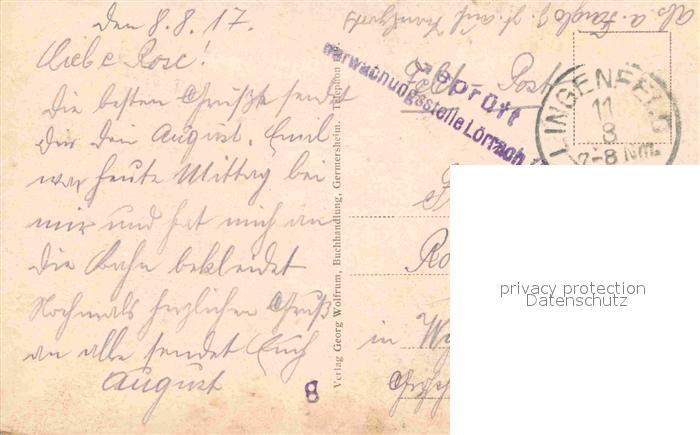 den 8.8.17.
Liebe Rose!
Die besten Grüße sendet
dir dein August. Emil
war heute Mittag bei
mir und hat mich an
die Bahn bekleidet
Nochmals herzlichen Gruß
an alle sendet Euch
August
8
Verlag Georg Wolfrum, Buchhandlung, Germersheim. Telephon
auf
Feld-Post
Geprüft
Überwachungsstelle Lörrach
LINGENFELD
11
8
7-8 Nm.
in
privacy protection
Datenschutz